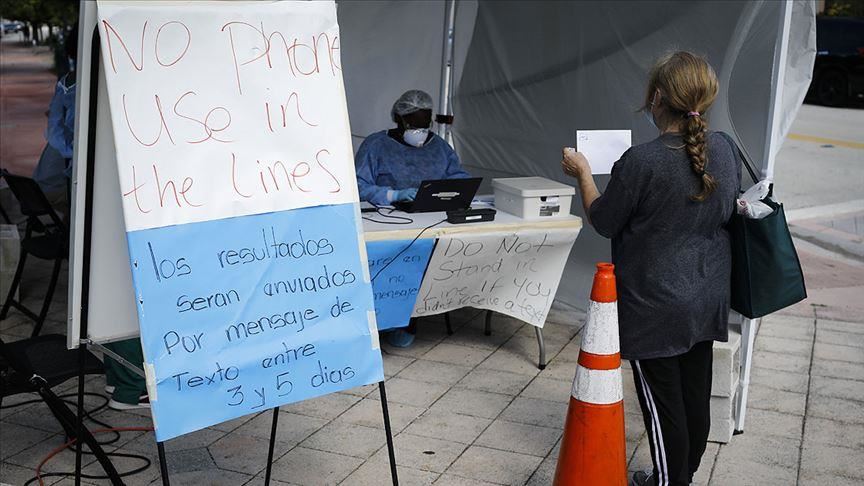 No Phone
Use in
the Lines
los resultados
seran anviados
Por mensaje de
Texto entre
3 y 5 dias
en
no
mensaje
Do Not
Stand in
Line If you
didn't receive a text